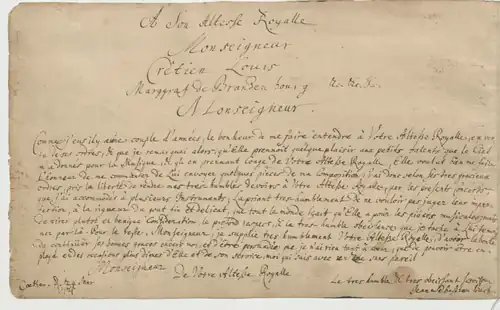 A Son Altesse Royalle
Monseigneur
Crétien Louis
Marggraf de Brandenbourg &c. &c. &c.
Monseigneur
Comme j'eus il y a une couple d'années, le bonheur de me faire entendre à Votre Altesse Royalle, en
de ses ordres, & que je remarquai alors, qu'Elle prennoit quelque plaisir aux petits talents que le Ciel
m'a donnés pour la Musique, & qu'en prennant Conge de Votre Altesse Royalle, Elle voulut bien me faire
l'honneur de me commander de Lui envoyer quelques pieces de ma Composition; j'ai donc selon ses tres gracieux
ordres, pris la liberté de rendre mes tres-humbles devoirs à Votre Altesse Royalle, par les presents Concerts,
que j'ai accommodés à plusieurs Instruments; La priant tres-humblement de ne vouloir pas juger leur imper-
fection, à la rigueur du gout fin et delicat, que tout le monde sçait qu'Elle a pour les piéces musicales;
de tirer plutot en benigne Consideration, le profond respect, & la tres-humble obeissance que je tache à Lui temoi-
gner par là. Pour le reste, Monseigneur, je supplie tres humblement Votre Altesse Royalle, d'avoir la bonté
de continüer ses bonnes graces envers moi, et d'être persuadée que je n'ai rien tant à cœur, que de pouvoir être em-
ployé en des occasions plus dignes d'Elle et de son service, moi qui suis avec un zele sans pareil
Monseigneur
De Votre Altesse Royalle
Coethen. d. 24 Mar
Le tres humble & tres obeissant serviteur
Jean Sebastien Bach.